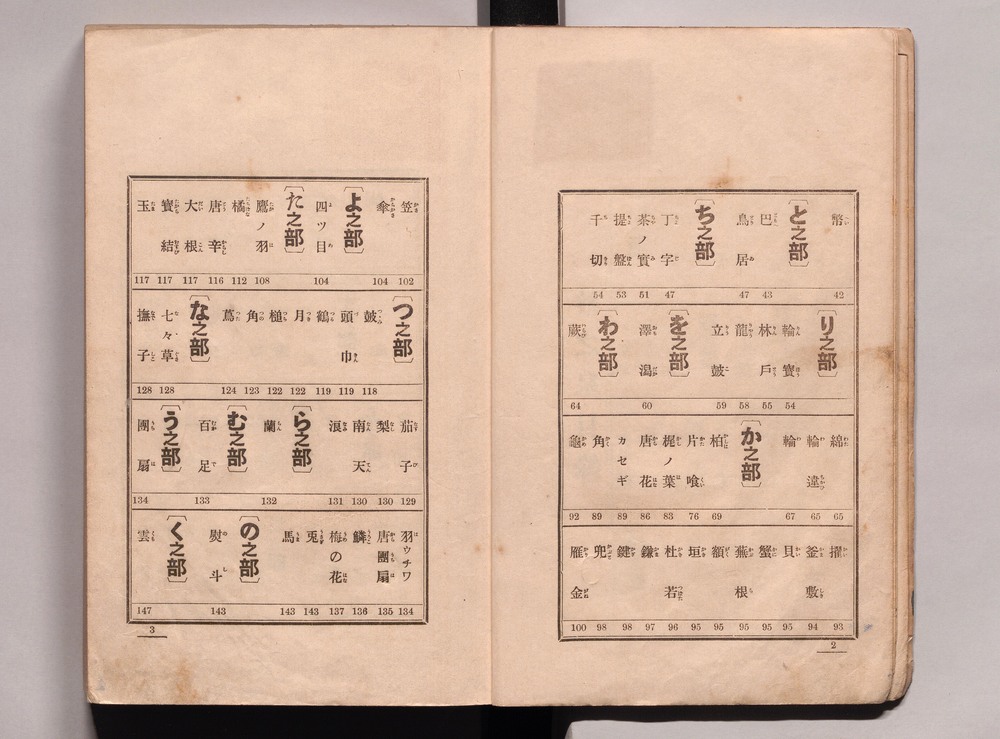 幣 42
と之部
巴 43
鳥居 47
ち之部
丁字 47
茶ノ實 51
提盤 53
千切 54
り之部
輪寶 54
林戶 55
龍 58
立鼓 59
を之部
澤潟 60
わ之部
蕨 64
綿 65
輪違 65
輪 67
か之部
柏 69
片喰 76
梶ノ葉 83
唐花 86
カセギ 89
角 89
龜 92
93
釜敷 94
貝 95
蟹 95
蕪根 95
額 95
垣 95
杜若 96
鎌 97
鍵 98
兜 98
雁金 100
2
笠 102
傘 104
よ之部
四ツ目 104
た之部
鷹ノ羽 108
橘 112
唐辛 116
大根 117
寶結 117
玉 117
つ之部
鼓 118
頭巾 119
鶴 119
月 122
槌 122
角 123
蔦 124
な之部
七々草 128
撫子 128
茄子 129
梨 130
南天 130
浪 131
ら之部
蘭 132
む之部
百足 133
う之部
團扇 134
羽ウチワ 134
唐團扇 135
鱗 136
梅の花 137
兎 143
馬 143
の之部
熨斗 143
く之部
雲 147
3